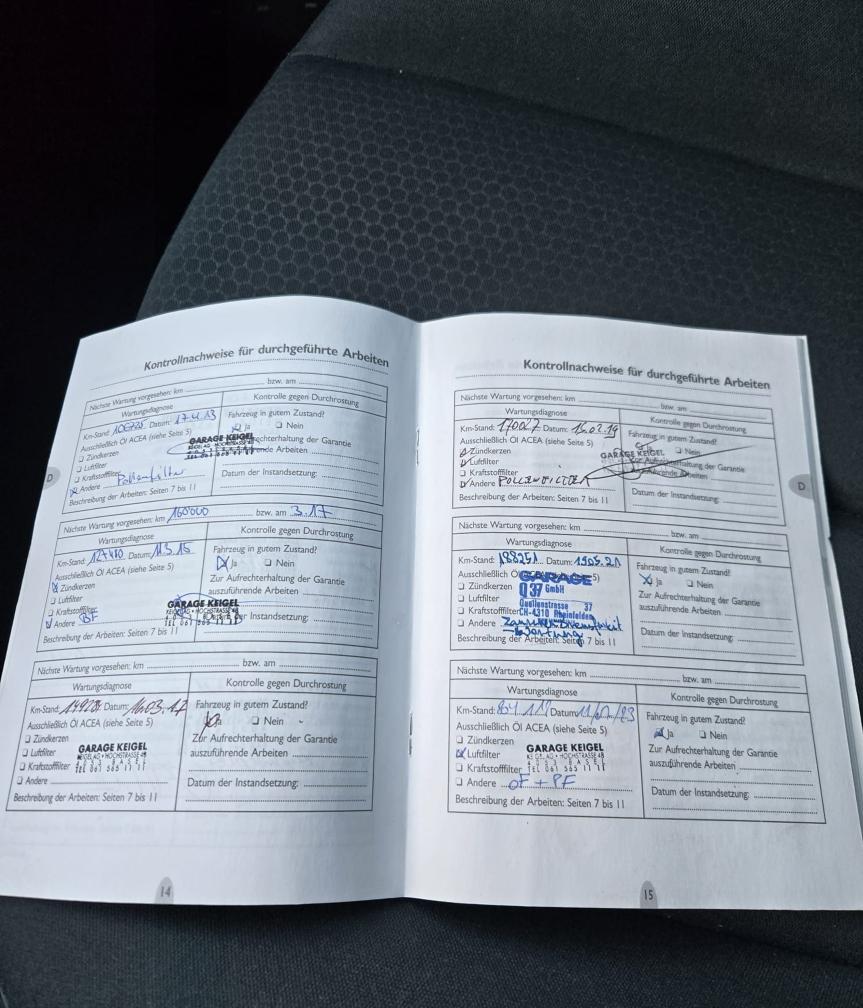 Kontrollnachweise für durchgeführte Arbeiten
Nächste Wartung vorgesehen: km bzw. am
Wartungsdiagnose
Kontrolle gegen Durchrostung
Km-Stand: Datum: 17.4.13
Fahrzeug in gutem Zustand?
Ausschließlich Öl ACEA (siehe Seite 5)
Ja Nein
Zündkerzen
Luftfilter
Kraftstofffilter
Andere Pollenfilter
GARAGE KEIGEL
Datum der Instandsetzung:
Beschreibung der Arbeiten: Seiten 7 bis 11
Nächste Wartung vorgesehen: km 160'000 bzw. am 3.17
Wartungsdiagnose
Kontrolle gegen Durchrostung
Km-Stand: Datum: 11.3.15
Fahrzeug in gutem Zustand?
Ausschließlich Öl ACEA (siehe Seite 5)
Ja Nein
Zündkerzen
Luftfilter
Kraftstofffilter
Andere BF
Zur Aufrechterhaltung der Garantie
auszuführende Arbeiten
GARAGE KEIGEL
TEL 061 565 11 11
der Instandsetzung:
Beschreibung der Arbeiten: Seiten 7 bis 11
Nächste Wartung vorgesehen: km bzw. am
Wartungsdiagnose
Kontrolle gegen Durchrostung
Km-Stand: Datum: 16.03.17
Fahrzeug in gutem Zustand?
Ausschließlich Öl ACEA (siehe Seite 5)
Ja Nein
Zündkerzen
Luftfilter
Kraftstofffilter
Andere
GARAGE KEIGEL
KEIGEL AG • HOCHSTRASSE 48
4053 BASEL
TEL 061 565 11 11
Zur Aufrechterhaltung der Garantie
auszuführende Arbeiten
Datum der Instandsetzung:
Beschreibung der Arbeiten: Seiten 7 bis 11
14
D
Kontrollnachweise für durchgeführte Arbeiten
Nächste Wartung vorgesehen: km bzw. am
Wartungsdiagnose
Kontrolle gegen Durchrostung
Km-Stand: 170027 Datum: 16.02.19
Fahrzeug in gutem Zustand?
Ausschließlich Öl ACEA (siehe Seite 5)
Ja Nein
Zündkerzen
Luftfilter
Kraftstofffilter
Andere POLLENFILTER
GARAGE KEIGEL
Datum der Instandsetzung:
Beschreibung der Arbeiten: Seiten 7 bis 11
D
Nächste Wartung vorgesehen: km bzw. am
Wartungsdiagnose
Kontrolle gegen Durchrostung
Km-Stand: 188251 Datum: 19.05.21
Fahrzeug in gutem Zustand?
Ausschließlich
Ja Nein
Zündkerzen
Luftfilter
Kraftstofffilter
Andere
GARAGE
Q 37 GmbH
Quellenstrasse 37
CH-4310 Rheinfelden
Wartung
Zur Aufrechterhaltung der Garantie
auszuführende Arbeiten
Datum der Instandsetzung:
Beschreibung der Arbeiten: Seiten 7 bis 11
Nächste Wartung vorgesehen: km bzw. am
Wartungsdiagnose
Kontrolle gegen Durchrostung
Km-Stand: Datum:
Fahrzeug in gutem Zustand?
Ausschließlich Öl ACEA (siehe Seite 5)
Ja Nein
Zündkerzen
Luftfilter
Kraftstofffilter
Andere OF + PF
GARAGE KEIGEL
HOCHSTRASSE 48
TEL 061 565 11 11
Zur Aufrechterhaltung der Garantie
auszuführende Arbeiten
Datum der Instandsetzung:
Beschreibung der Arbeiten: Seiten 7 bis 11
15